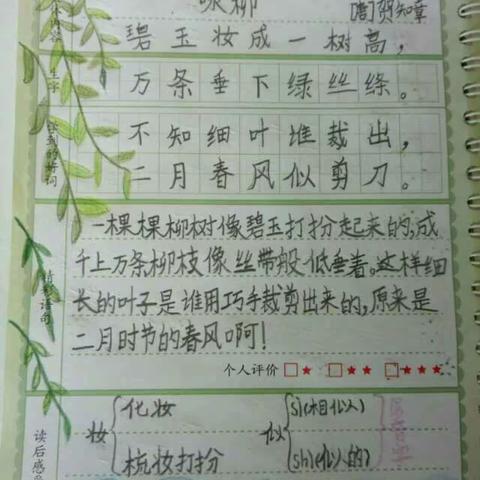 咏柳
[唐]贺知章
碧玉妆成一树高，
万条垂下绿丝绦。
不知细叶谁裁出，
二月春风似剪刀。
一棵棵柳树像碧玉打扮起来的,成
千上万条柳枝像丝带般低垂着。这样细
长的叶子是谁用巧手裁剪出来的,原来是
二月时节的春风啊!
个人评价 □★ □★★ □★★★
妆{化妆
梳妆打扮
似{sì(相似)
shì(似的)
生字
精彩语句
读后感